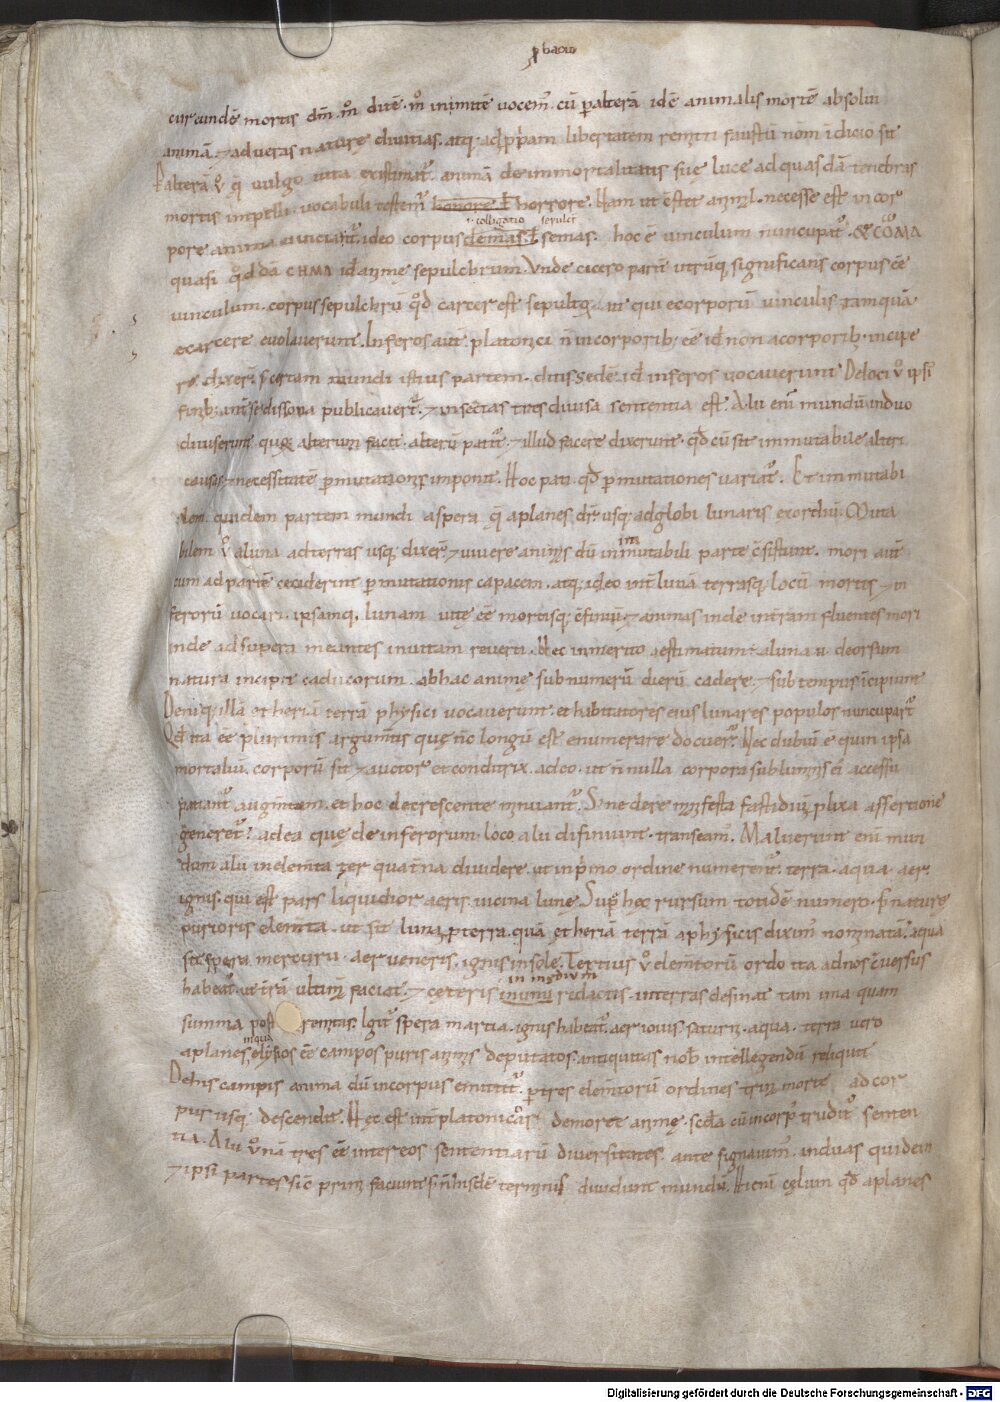 ꝓbacio
cur eundē mortis dm̄ m̊ ditē m̊ inmitē vocem᷒ cū p alterā idē animalis mortē absolui
animā ⁊ ad veras naturę divitias atq; ad ꝓpriam libertatem remitti faustū nom̄ īdicio sit
ꝑ alterā v̊ q̄ vulgo vita existimat᷑ animā de immortalitatis suę luce ad quasdā tenebras
mortis impelli vocabuli testem᷑ honore ł horrore. Nam ut ēstet aīal necesse est in cor
.i. colligatio sepulcr
pore anima vinciat᷑ ideo corpus demas ł semas. hoc ē vinculum nuncupat᷑. & CΩMA
quasi qd̊dā CHMA id aīmę sepulchrum. Unde cicero parit̄ utrūq; significans corpus ēē
vinculum. corpus sepulchrū qd̊ carcer est sepultoꝝ. in qui e corporū vinculis tamquā
e carcere evolaverunt. Inferos aūt platonici ñ in corporib; ēē id̄ non a corporib; incipe
re dixer̄ s; certam mundi istius partem ditis sedē id̄ inferos vocaverunt De loci v̊ ipsi
finib; int̄ se dissona publicaver̄t ⁊ in sectas tres divisa sententia est. Alii eni᷑ mundū in duo
diviserunt quoꝝ alterum facit alterū patit᷑ ⁊ illud facere dixerunt qd̄ cū sit immutabile alteri
causas ⁊ necessitatē ꝑmutationis imponit. Hoc pati qd̄ ꝑ mutationes variat᷑. Et immutabi
lem quidem partem mundi a spera q̄ aplanes dr̄ usq; ad globi lunaris exordiū. Muta
im
bilem v̊ a luna ad terras usq; dixer̄ ⁊ vivere animas dū in inmutabili parte ēsistunt. mori aūt
cum ad partē ceciderint ꝑ mutationis capacem. atq; ideo int̄ lunā terrasq; locū mortis ⁊ in
ferorū vocari. ipsamq; lunam vitę ēē mortisq; ēfiniū ⁊ animas inde in tr̄am fluentes mori
inde ad supera meantes in vitam reverti. Nec inmerito aestimatum a luna n̄ deorsum
natura incipit caducorum. ab hac animę sub numerū dierū cadere ⁊ sub tempus īcipiunt
Deniq; illā etheriā terrā physici vocaverunt et habitatores eius lunares populos nuncupar̄t
Qd̄ ita ēē plurimis argum̄tis quę nc̄ longū est enumerare docuer̄. Nec dubiū ē quin ipsa
mortaliū corporū sit ⁊ auctor et conditrix. adeo ut ñ nulla corpora sub luminis ei accessu
patiant᷑ augm̄tum et hoc decrescente minuant᷑. S; ne de re manifesta fastidiū ꝓlixa assertione
generet᷑. ad ea quę de inferorum loco alii difiniunt transeam᷒. Maluerunt eni᷑ mun
dum alii in elem̄ta ter quat̄na dividere. ut in p̄mo ordine numerent᷑ terra. aqua. aer.
ignis. qui est pars liquidior aeris vicina lunę. Sup̄ hęc rursum totidē numero s; naturę
purioris elem̄ta. ut sit luna ꝓ terra quā etheriā terrā a physicis diximᷣ nominatā. aqua
sit spera mercurii. aer veneris. ignis in sole. Tertius v̊ elem̄torū ordo ita ad nos ēversus
in medium
habeat᷑ ut t̄rā ultimā faciat ⁊ ceteris inimū redactis in terras desinat tam ima quam
summa postremitas. Igit᷑ spera martia ignis habeat᷑ aer iovis. saturni aqua. terra vero
in qua
aplanes elysios ēē campos puris animis deputatos antiquitas nob̄ intellegendū reliquit
De his campis anima dū in corpus emittit᷑ ꝑ tres elem̄torū ordines trina morte ad cor
pus usq; descendit. Hęc est int̄ platonicos de morte animę. sc̄da cū in corp᷒ trudit᷑ senten
tia. Alii v̊ nā tres ēē inter eos sententiarū diversitates ante signavim᷒. in duas quidem
⁊ ipsi partes sic̄ primi faciunt s; ñ hisdē terminis dividunt mundū. Hi eni᷑ cęlum qd̄ aplanes
Digitalisierung gefördert durch die Deutsche Forschungsgemeinschaft - DFG